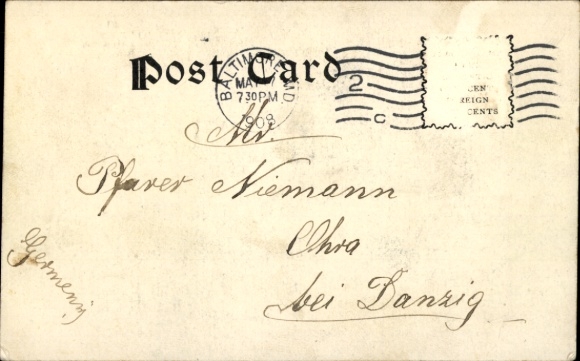 Post Card
BALTIMORE, MD.
MAY 7
730 PM
1908
2
C
CEN
REIGN
CENTS
Mr.
Pfarer Niemann
Ohra
bei Danzig
Germeny